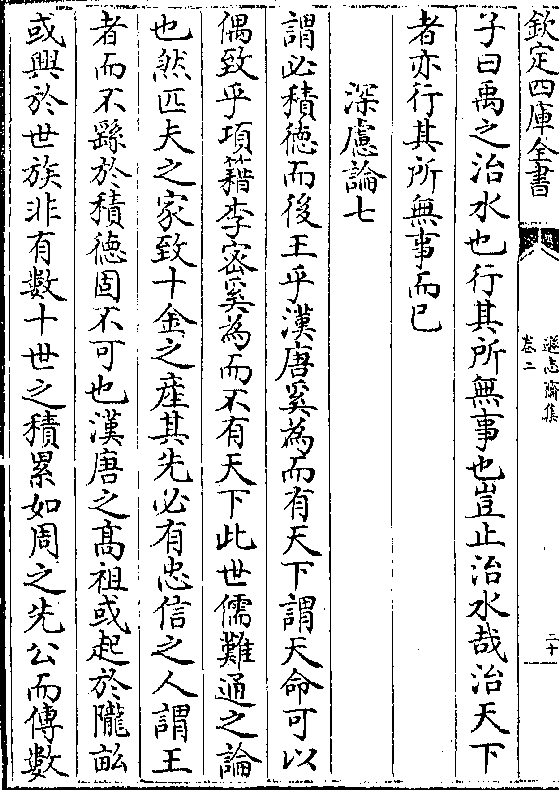 欽定四庫全書
遜志齋集
卷二
二十
子曰禹之治水也行其所無事也豈止治水哉治天下
者亦行其所無事而已
深慮論七
謂必積德而後王乎漢唐奚為而有天下謂天命可以
偶致乎項籍李密奚為而不有天下此世儒難通之論
也然匹夫之家致十金之產其先必有忠信之人謂王
者而不繇於積德固不可也漢唐之髙祖或起於隴畝
或興於世族非有數十世之積累如周之先公而傳數